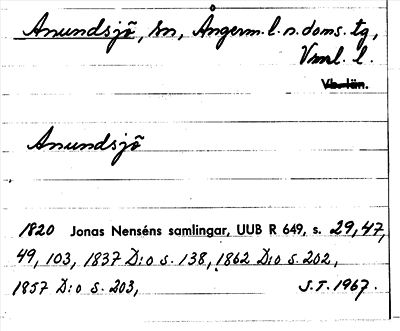 Anundsjö, sn, Ångerm. l. n. doms. tg,
Vnrl. l.
Vb. län.
Anundsjö
1820 Jonas Nenséns samlingar, UUB R 649, s. 29, 47,
49, 103, 1837 D:o s. 138, 1862 D:o s. 202,
1857 D:o s. 203, S.T. 1967.